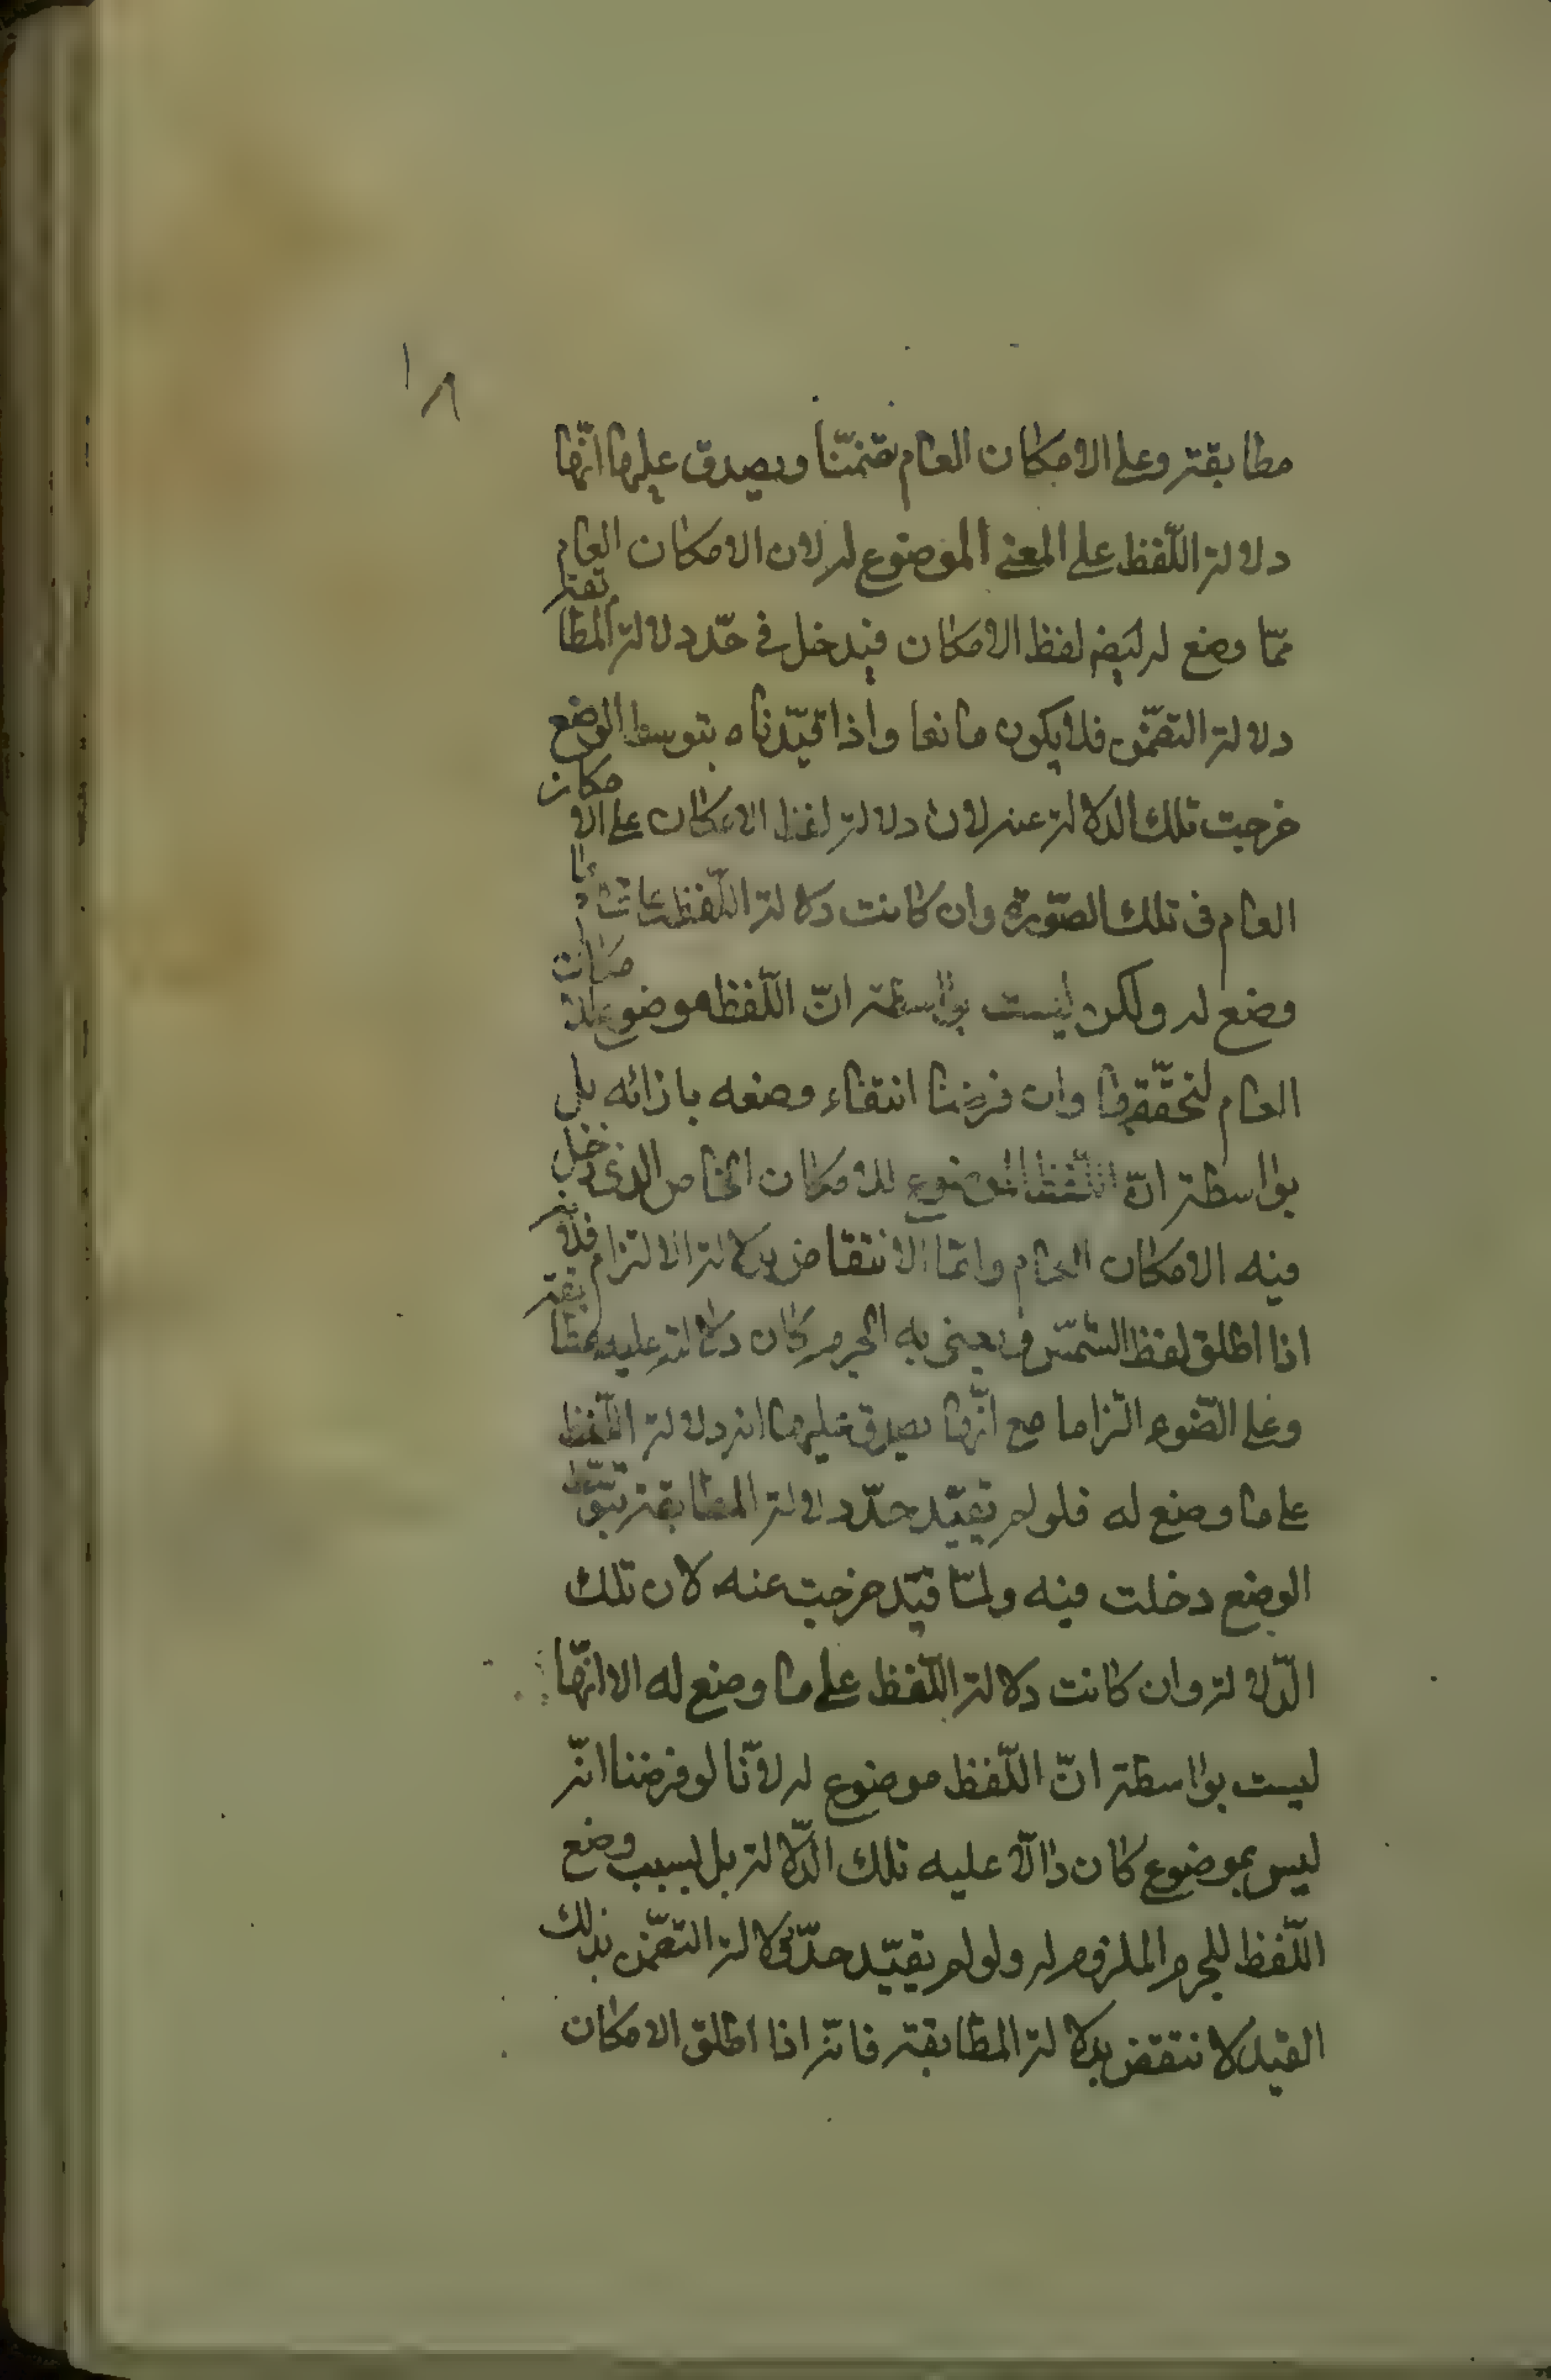 ١٨
مطابقة وعلى الامكان العام تضمّنا ويصدق عليها انّها
دلالة اللّفظ على المعنى الموضوع له لان الامكان العام
ممّا وضع له ايضا لفظ الامكان فيدخل في حدّ دلالة المطابقة
دلالة التضمّن فلا يكون مانعا واذا قيّدناه بتوسط الوضع
خرجت تلك الدلالة عنه لان دلالة لفظ الامكان على الامكان
العام في تلك الصّورة وان كانت دلالة اللّفظ على ما
وضع له ولكن ليست بواسطة انّ اللّفظ موضوع للامكان
العام لتحقّقها وان فرضنا انتفاء وضعه بازائه بل
بواسطة انّ اللّفظ الموضوع للامكان الخاص الذى دخل
فيه الامكان العام وامّا الانتقاض بدلالة الالتزام فلانّه
اذا اطلق لفظ الشّمس ويعنى به الجرم كان دلالته عليه مطابقة
وعلى الضّوء التزاما مع انّها يصدق عليها انه دلالة اللّفظ
على ما وضع له فلو لم يقيّد حدّ دلالة المطابقة بتوسّط
الوضع دخلت فيه ولمّا قيّد خرجت عنه لان تلك
الدّلالة وان كانت دلالة اللّفظ على ما وضع له الا انّها
ليست بواسطة انّ اللّفظ موضوع له لانّا لو فرضنا انّه
ليس بموضوع كان دالّا عليه تلك الدّلالة بل بسبب وضع
اللّفظ للجرم الملزوم له ولو لم يقيّد حدّ دلالة التضمّن بذلك
القيد لانتقض بدلالة المطابقة فانّه اذا اطلق الامكان